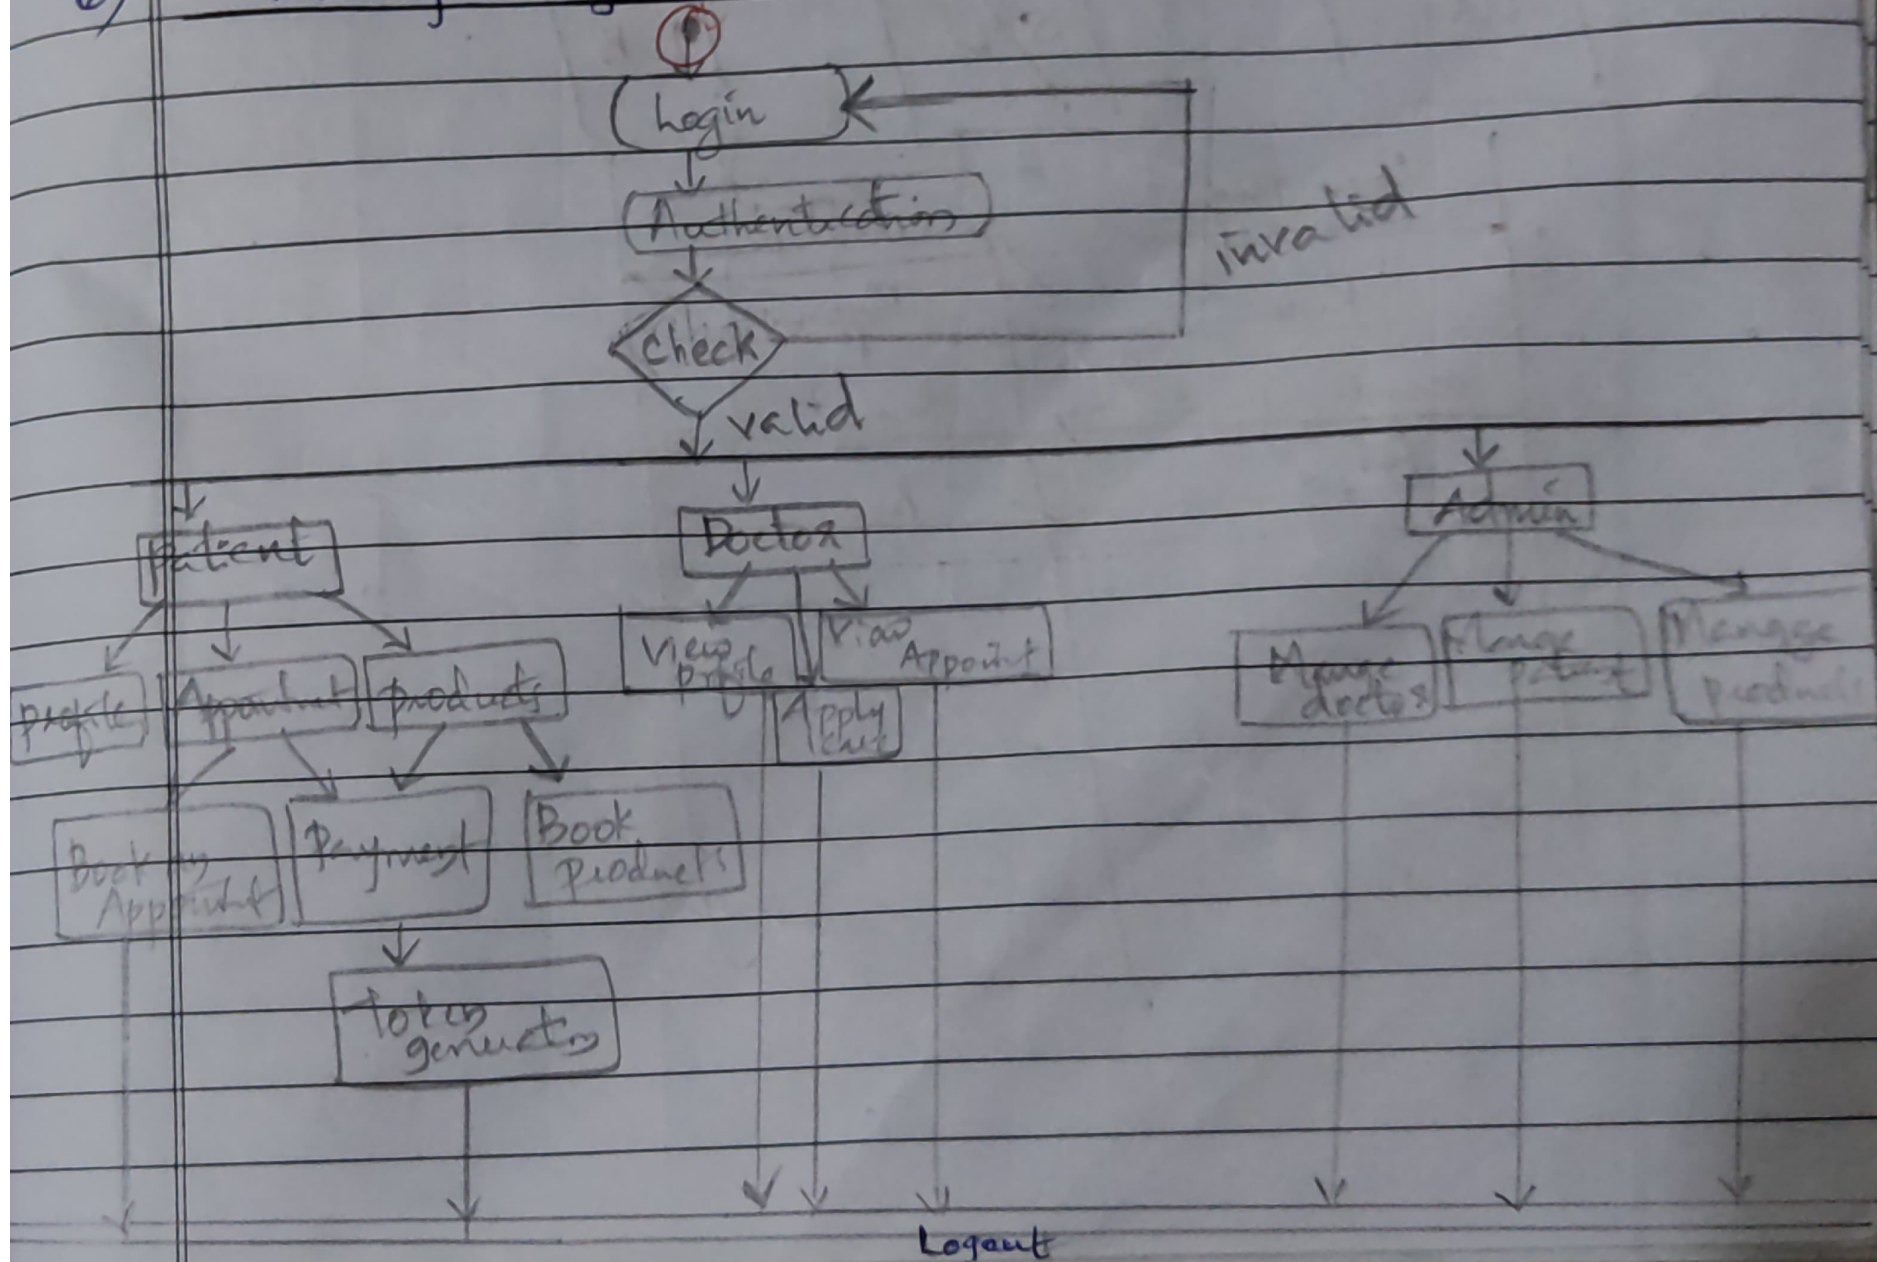 Login
Authentication
invalid
check
valid
Patient
Doctor
Admin
Profile
Appointmt
products
View
profile
View
Appoint
Apply
Mange
doctor
Mange
patient
Mangae
products
Booking
Appoint
Payment
Book
Products
Token
Logout